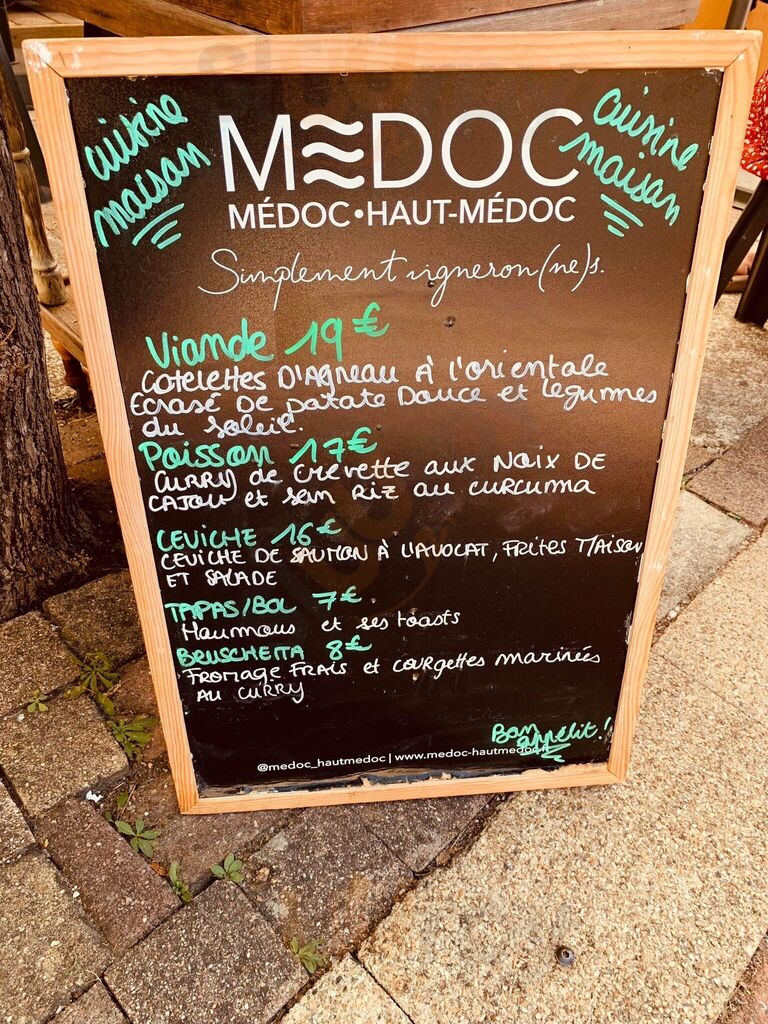 cuisine maison
cuisine maison
MEDOC
MÉDOC•HAUT-MÉDOC
Simplement vigneron(ne)s.
Viande 19€
Cotelettes D'Agneau À l'orientale
Ecrasé De patate Douce et légumes
du soleil.
Poisson 17€
CURRY de crevette aux NOIX DE
CAJOU et son RIZ au CURCUMA
CEVICHE 16€
CEVICHE DE SAUMON À L'AVOCAT, FRITES MAISON
ET SALADE
TAPAS/BOL 7€
Houmous et ses toasts
BRUSCHETTA 8€
FROMAGE FRAIS et courgettes marinées
AU CURRY
Bon
appétit!
@medoc_hautmedoc | www.medoc-hautmedoc.fr